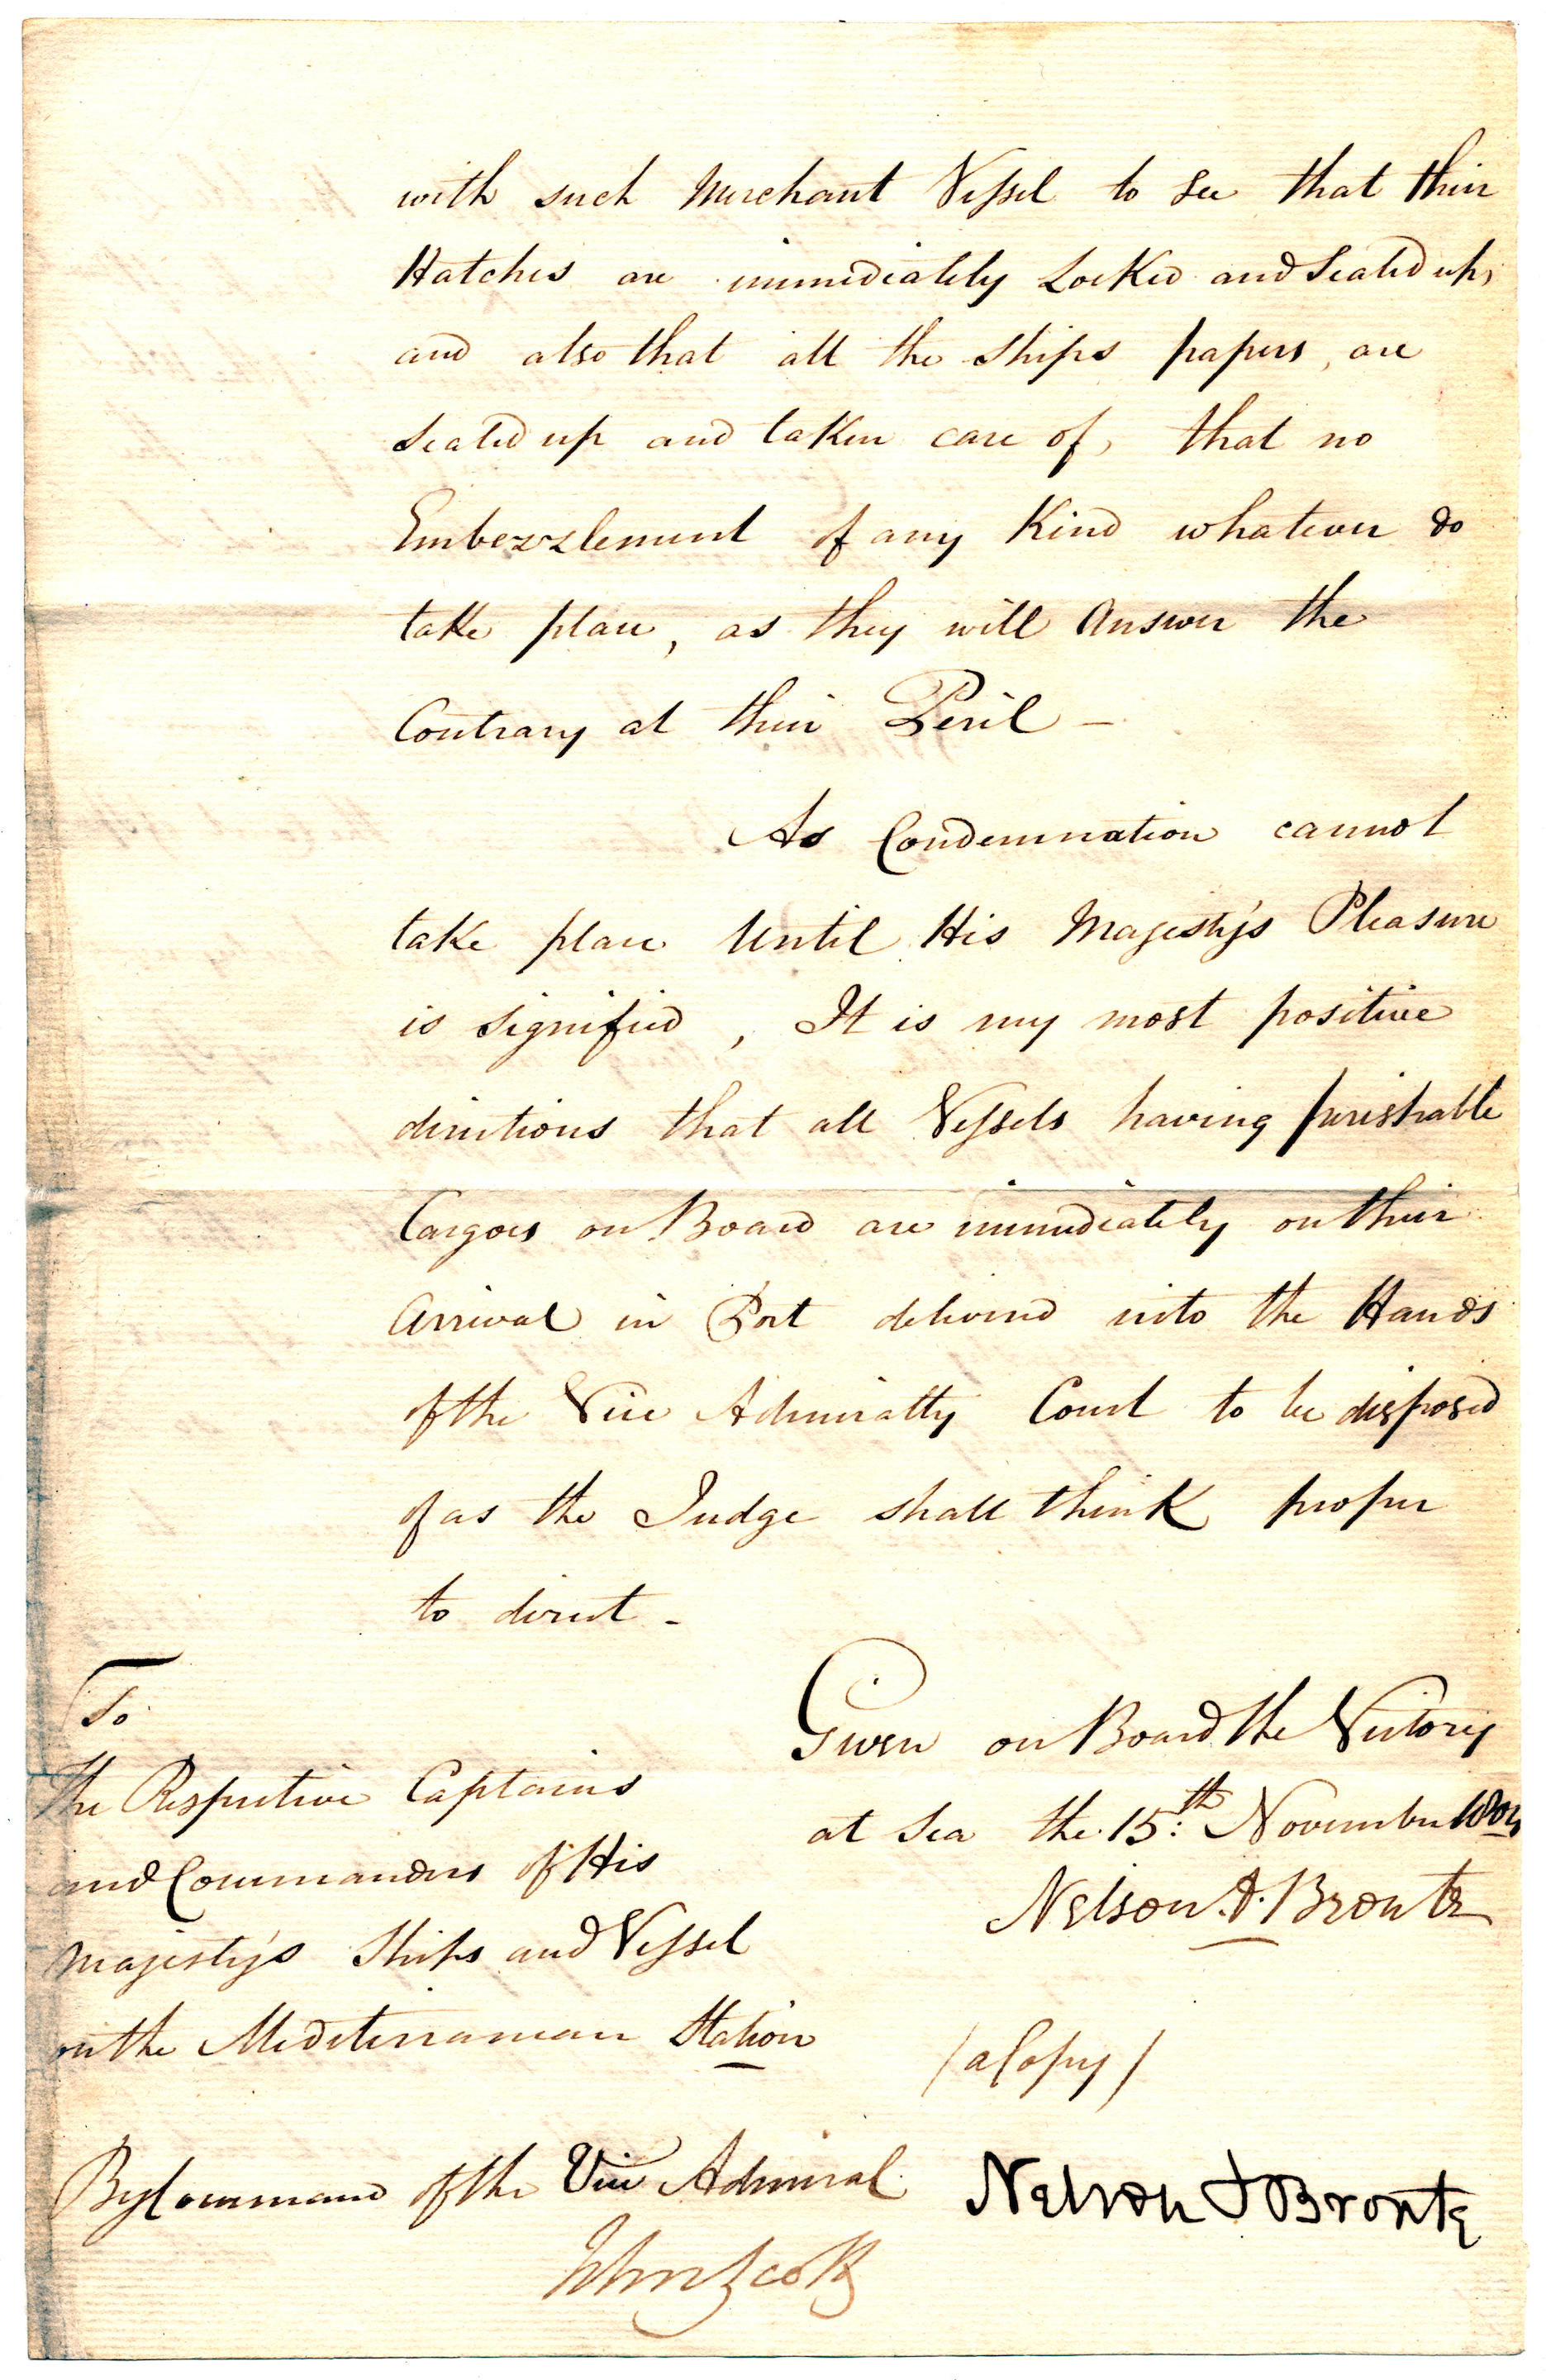 with such Merchant Vessel to See that their
Hatches are immediately Locked and Sealed up,
and also that all the Ships papers, are
Sealed up and taken care of, that no
Embezzlement of any Kind whatever do
take place, as they will Answer the
Contrary at their Peril –
As Condemnation cannot
take place Until His Majesty's Pleasure
is Signified, It is my most positive
directions that all Vessels having perishable
Cargoes on Board are immediately on their
Arrival in Port delivered into the Hands
of the Vice Admiralty Court to be disposed
of as the Judge shall think proper
to direct –
Given on Board the Victory
at Sea the 15:th November 1804
Nelson & Bronte
To
the Respective Captains
and Commanders of His
Majesty's Ships and Vessel
on the Mediterranean Station
(a Copy)
By Command of the Vice Admiral
John Scott
Nelson & Bronte